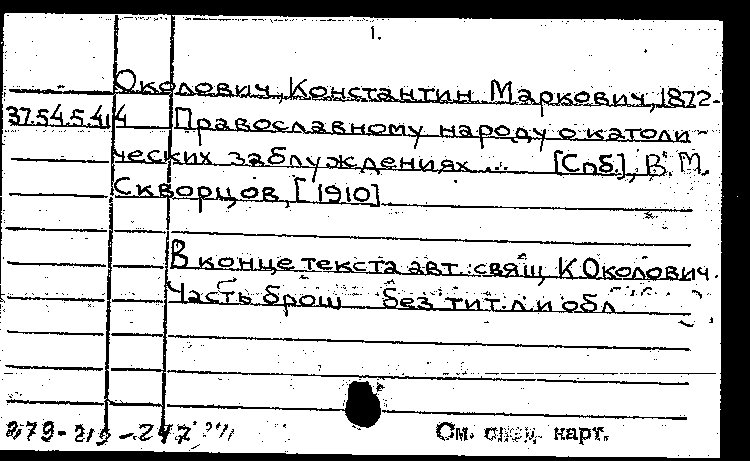 1.
Околович, Константин Маркович, 1872-
37.54.5.414 Православному народу о католи-
ческих заблуждениях ... [Спб.], В. М.
Скворцов, [1910]
В конце текста авт.: свящ. К Околович.
Часть брош без тит. л. и обл
См. спец. карт.